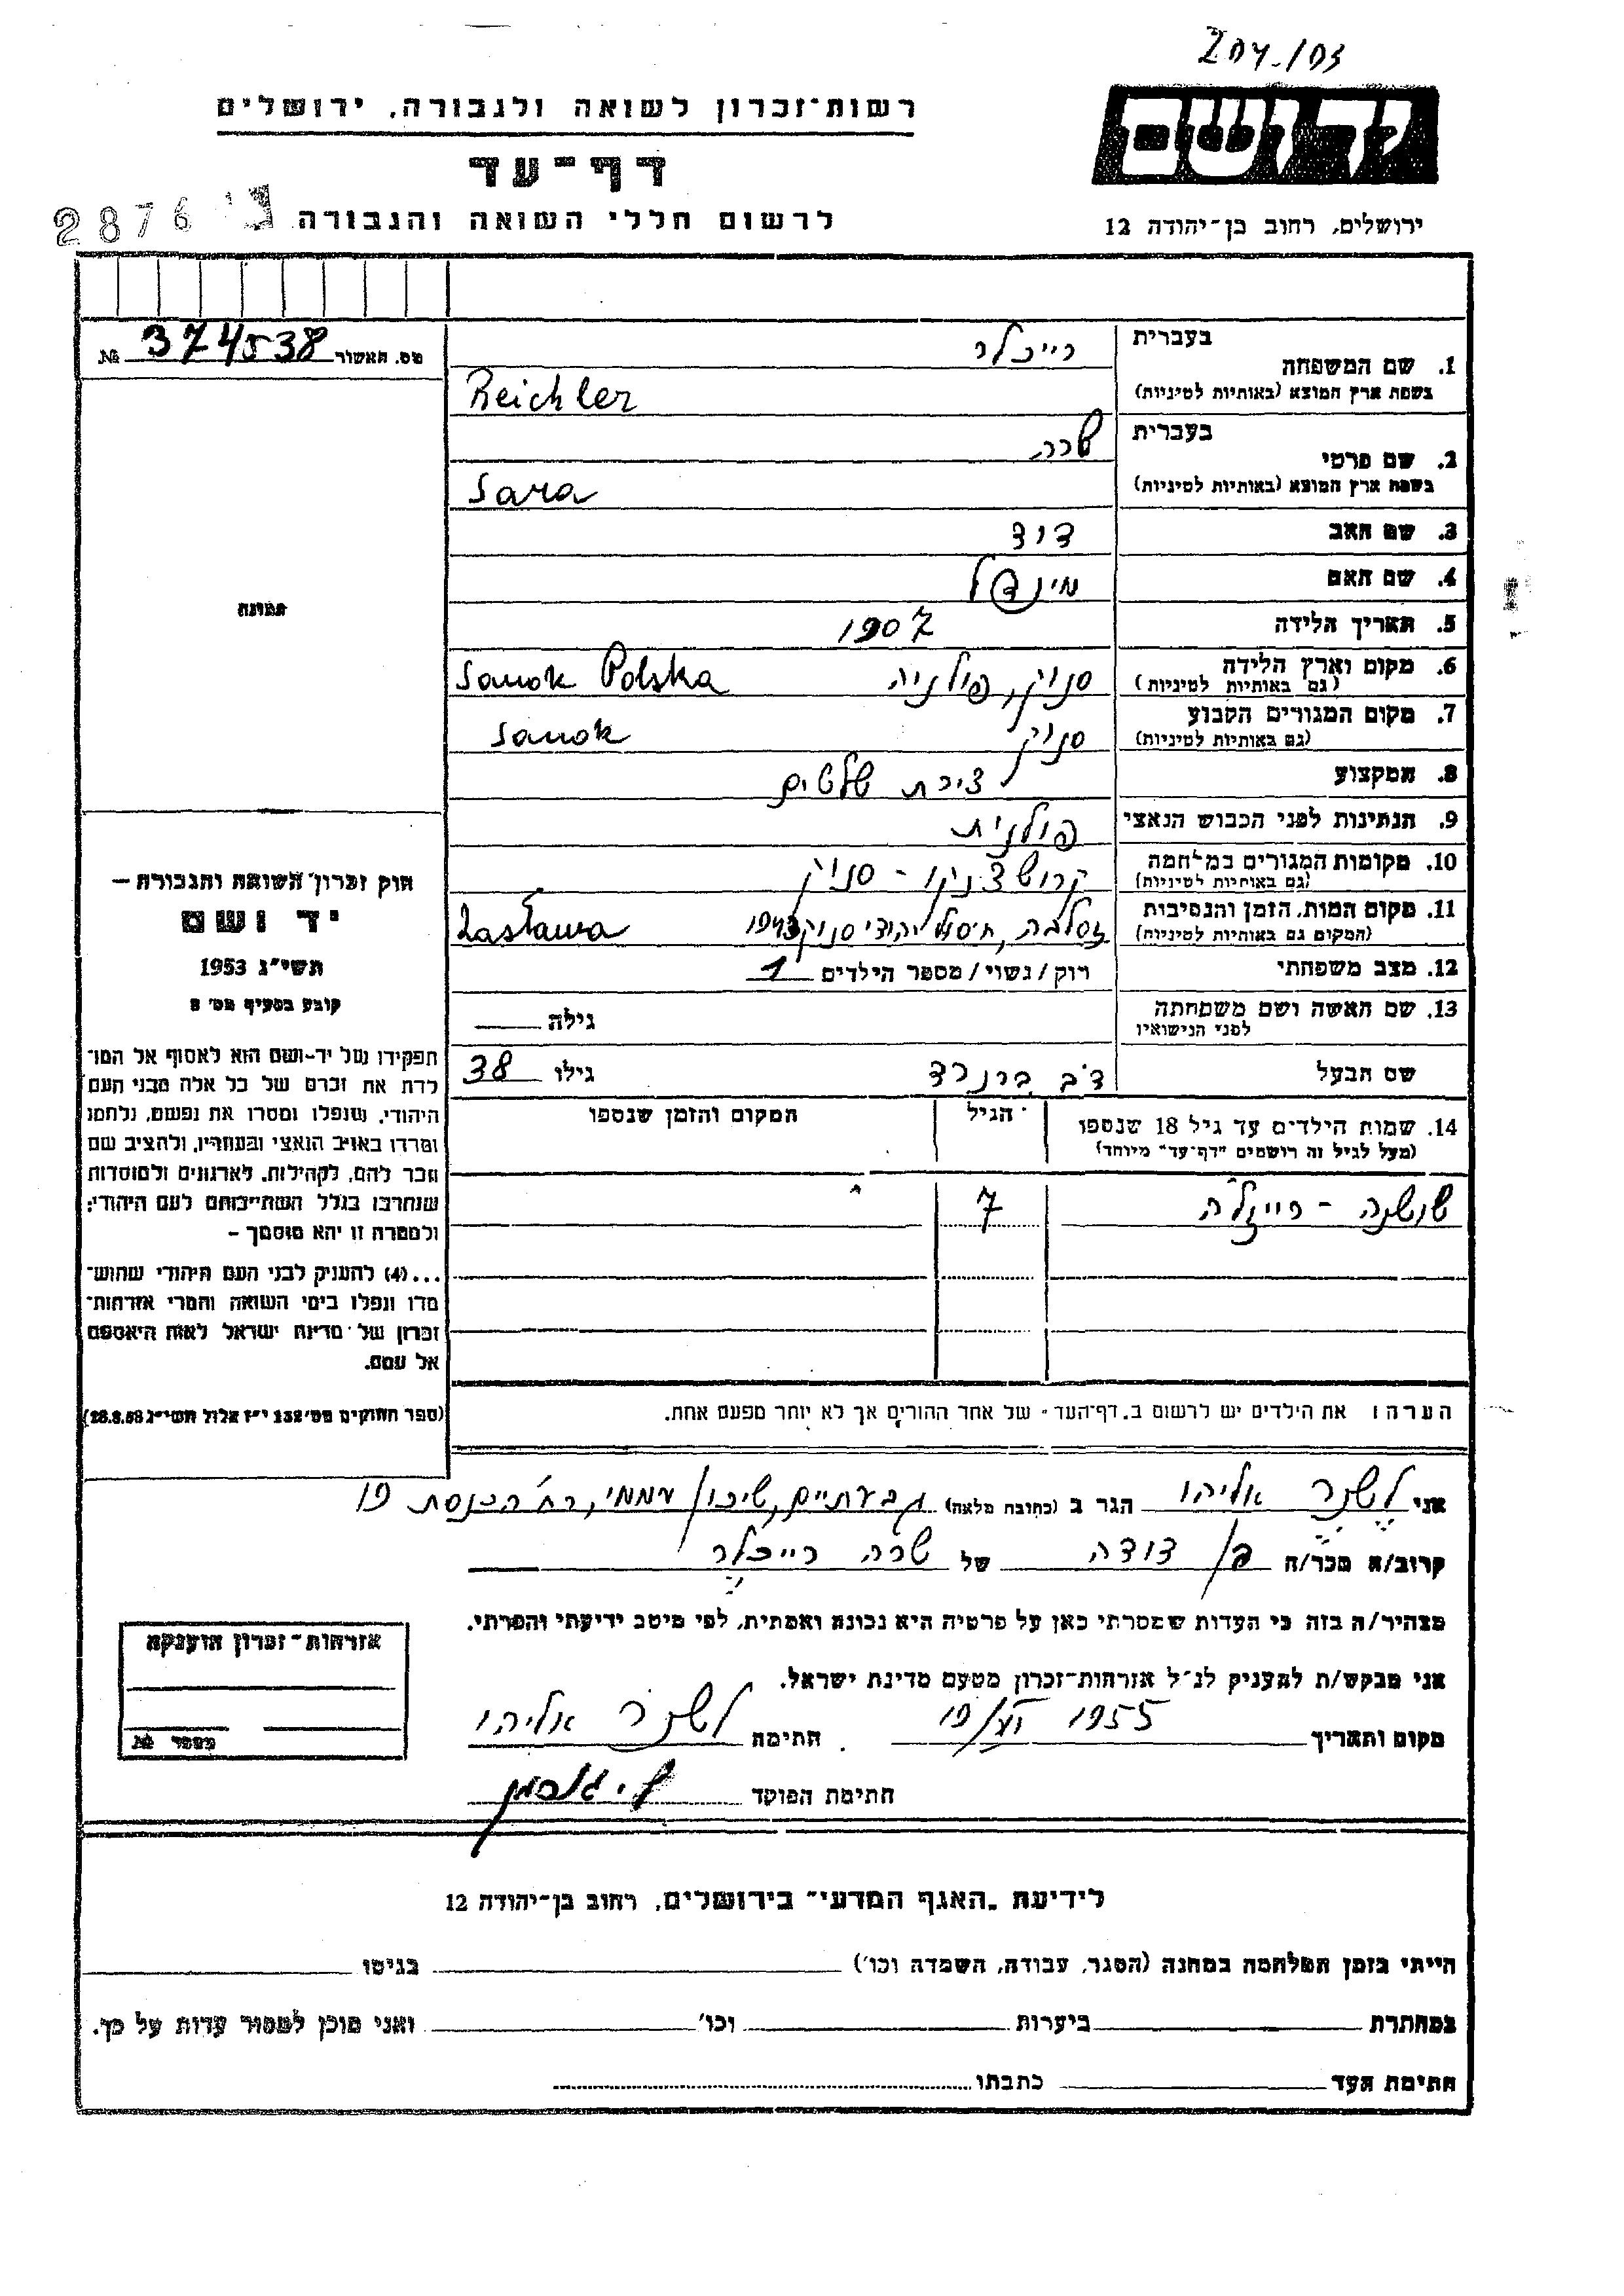 204/03
יד ושם
רשות־זכרון לשואה ולגבורה, ירושלים
דף־עד
לרשום חללי השואה והגבורה
2876
ירושלים, רחוב בן־יהודה 12
מס. האשור 374538 №
תמונה
חוק זכרון השואה והגבורה –
יד ושם
תשי״ג 1953
קובע בסעיף מס׳ 2
תפקידו של יד-ושם הוא לאסוף אל המו־
לדת את זכרם של כל אלה מבני העם
היהודי, שנפלו ומסרו את נפשם, נלחמו
ומרדו באויב הנאצי ובעוזריו, ולהציב שם
וזכר להם, לקהילות, לארגונים ולמוסדות
שנחרבו בגלל השתייכותם לעם היהודי;
ולמטרה זו יהא מוסמך –
...(4) להעניק לבני העם היהודי שהוש־
מדו ונפלו בימי השואה והמרי אזרחות־
זכרון של מדינת ישראל לאות היאספם
אל עמם.
(ספר החוקים מס׳ 132 י״ז אלול תשי״ג 28.8.53)
1. שם המשפחה בעברית רייכלר
בשפת ארץ המוצא (באותיות לטיניות) Reichler
2. שם פרטי בעברית שרה
בשפת ארץ המוצא (באותיות לטיניות) Sara
3. שם האב דוד
4. שם האם מינדל
5. תאריך הלידה 1907
6. מקום וארץ הלידה (גם באותיות לטיניות) סנוק, פולניה Sanok Polska
7. מקום המגורים הקבוע (גם באותיות לטיניות) סנוק Sanok
8. המקצוע ציירת שלטים
9. הנתינות לפני הכבוש הנאצי פולנית
10. מקומות המגורים במלחמה (גם באותיות לטיניות) קרושצנקו - סנוק
11. מקום המות, הזמן והנסיבות (המקום גם באותיות לטיניות) זסלבה, חיסול יהודי סנוק 1943 Zasława
12. מצב משפחתי רוק/נשוי/מספר הילדים 1
13. שם האשה ושם משפחתה לפני הנישואין גילה
שם הבעל ד״ר ברנרד גילו 38
14. שמות הילדים עד גיל 18 שנספו (מעל לגיל זה רושמים ״דף־עד״ מיוחד) הגיל המקום והזמן שנספו
שושנה - רייזלה 7
הערה: את הילדים יש לרשום ב״דף־העד״ של אחד ההורים אך לא יותר מפעם אחת.
אני לשנר אליהו הגר ב (כתובת מלאה) גבעתיים, שיכון עממי, רח׳ הכנסת 19
קרוב/ה מכר/ה בן דודה של שרה רייכלר
מצהיר/ה בזה כי העדות שמסרתי כאן על פרטיה היא נכונה ואמתית, לפי מיטב ידיעתי והכרתי.
אני מבקש/ת להעניק לנ״ל אזרחות־זכרון מטעם מדינת ישראל.
מקום ותאריך 1955 חתימה לשנר אליהו
חתימת הפוקד
אזרחות־זכרון הוענקה
מספר №
לידיעת ״האגף המדעי״ בירושלים, רחוב בן־יהודה 12
הייתי בזמן המלחמה במחנה (הסגר, עבודה, השמדה וכו׳) בגיטו
במחתרת ביערות וכו׳ ואני מוכן למסור עדות על כך.
חתימת העד כתבתו